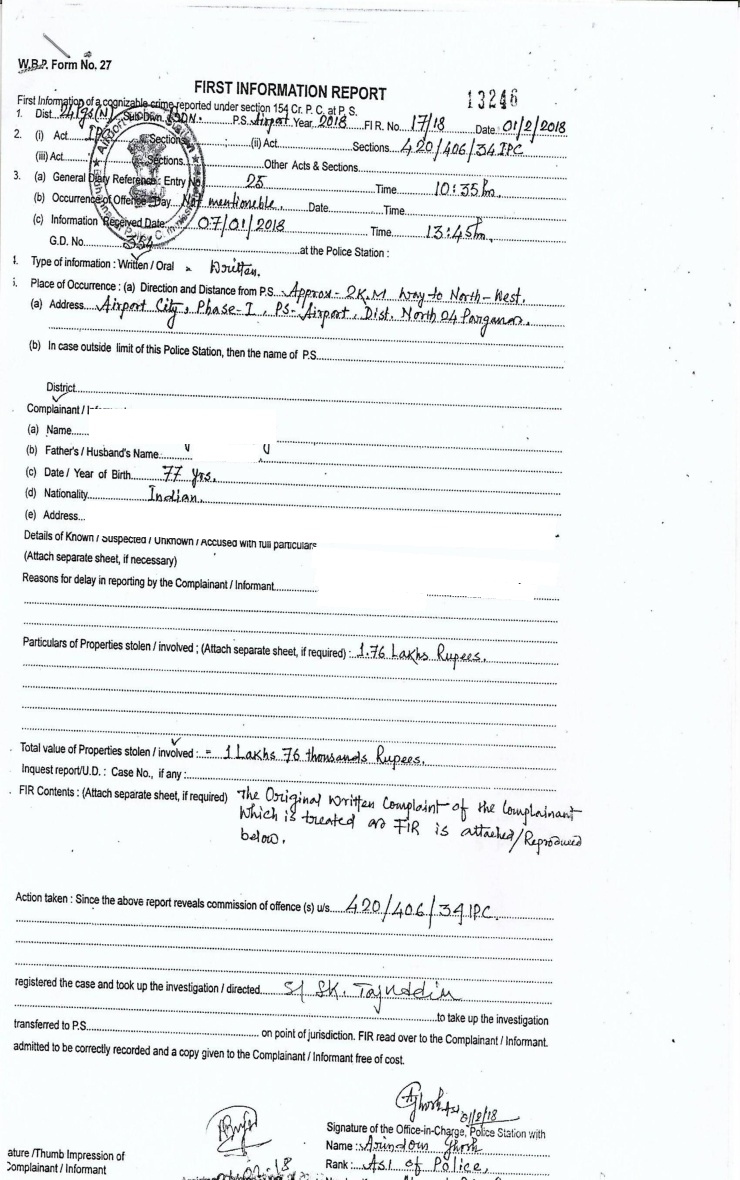 W.B.P. Form No. 27
FIRST INFORMATION REPORT
13246
First Information of a cognizable crime reported under section 154 Cr. P. C. at P. S.
1. Dist. 24 Pgs (N) Sub Divn. P.S. Airport Year 2018 FIR. No. 17/18 Date 01/2/2018
2. (i) Act IPC Sections (ii) Act Sections 420/406/34 IPC
(iii) Act Sections Other Acts & Sections
3. (a) General Diary Reference : Entry No 25 Time 10:35 hrs
(b) Occurrence of Offence : Day Not mentionable. Date Time
(c) Information Received Date 07/01/2018 Time 13:45 hrs.
G.D. No. 354 at the Police Station :
Type of information : Written / Oral Written.
Place of Occurrence : (a) Direction and Distance from P.S. Approx - 2K.M way to North-West.
(a) Address Airport City, Phase-I, PS- Airport, Dist. North 24 Parganas.
(b) In case outside limit of this Police Station, then the name of P.S.
District
Complainant /
(a) Name
(b) Father's / Husband's Name
(c) Date / Year of Birth 77 yrs.
(d) Nationality Indian.
(e) Address
Details of Known / Suspected / Unknown / Accused with full particulars
(Attach separate sheet, if necessary)
Reasons for delay in reporting by the Complainant / Informant
Particulars of Properties stolen / involved ; (Attach separate sheet, if required) : 1.76 Lakhs Rupees.
Total value of Properties stolen / involved : = 1 Lakhs 76 thousands Rupees.
Inquest report/U.D. : Case No., if any :
FIR Contents : (Attach separate sheet, if required) The Original Written Complaint of the Complainant
Which is treated as FIR is attached/Reproduced
below.
Action taken : Since the above report reveals commission of offence (s) u/s 420/406/34 IPC.
registered the case and took up the investigation / directed SI SK. Tajuddin
to take up the investigation
transferred to P.S. on point of jurisdiction. FIR read over to the Complainant / Informant.
admitted to be correctly recorded and a copy given to the Complainant / Informant free of cost.
Ghosh ASI 01/2/18
Signature of the Office-in-Charge, Police Station with
Name : Arindam Ghosh
ature /Thumb Impression of
Complainant / Informant
Rank : ASI of Police,